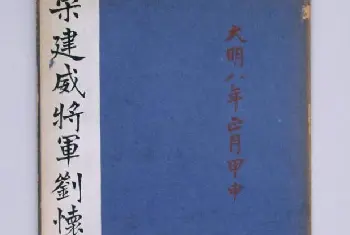 宋建威將軍劉懷
大明八年正月甲申